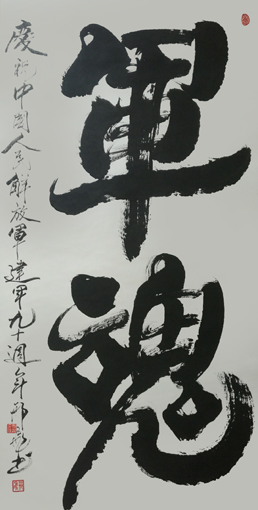 軍魂
慶祝中国人民解放軍建軍九十週年